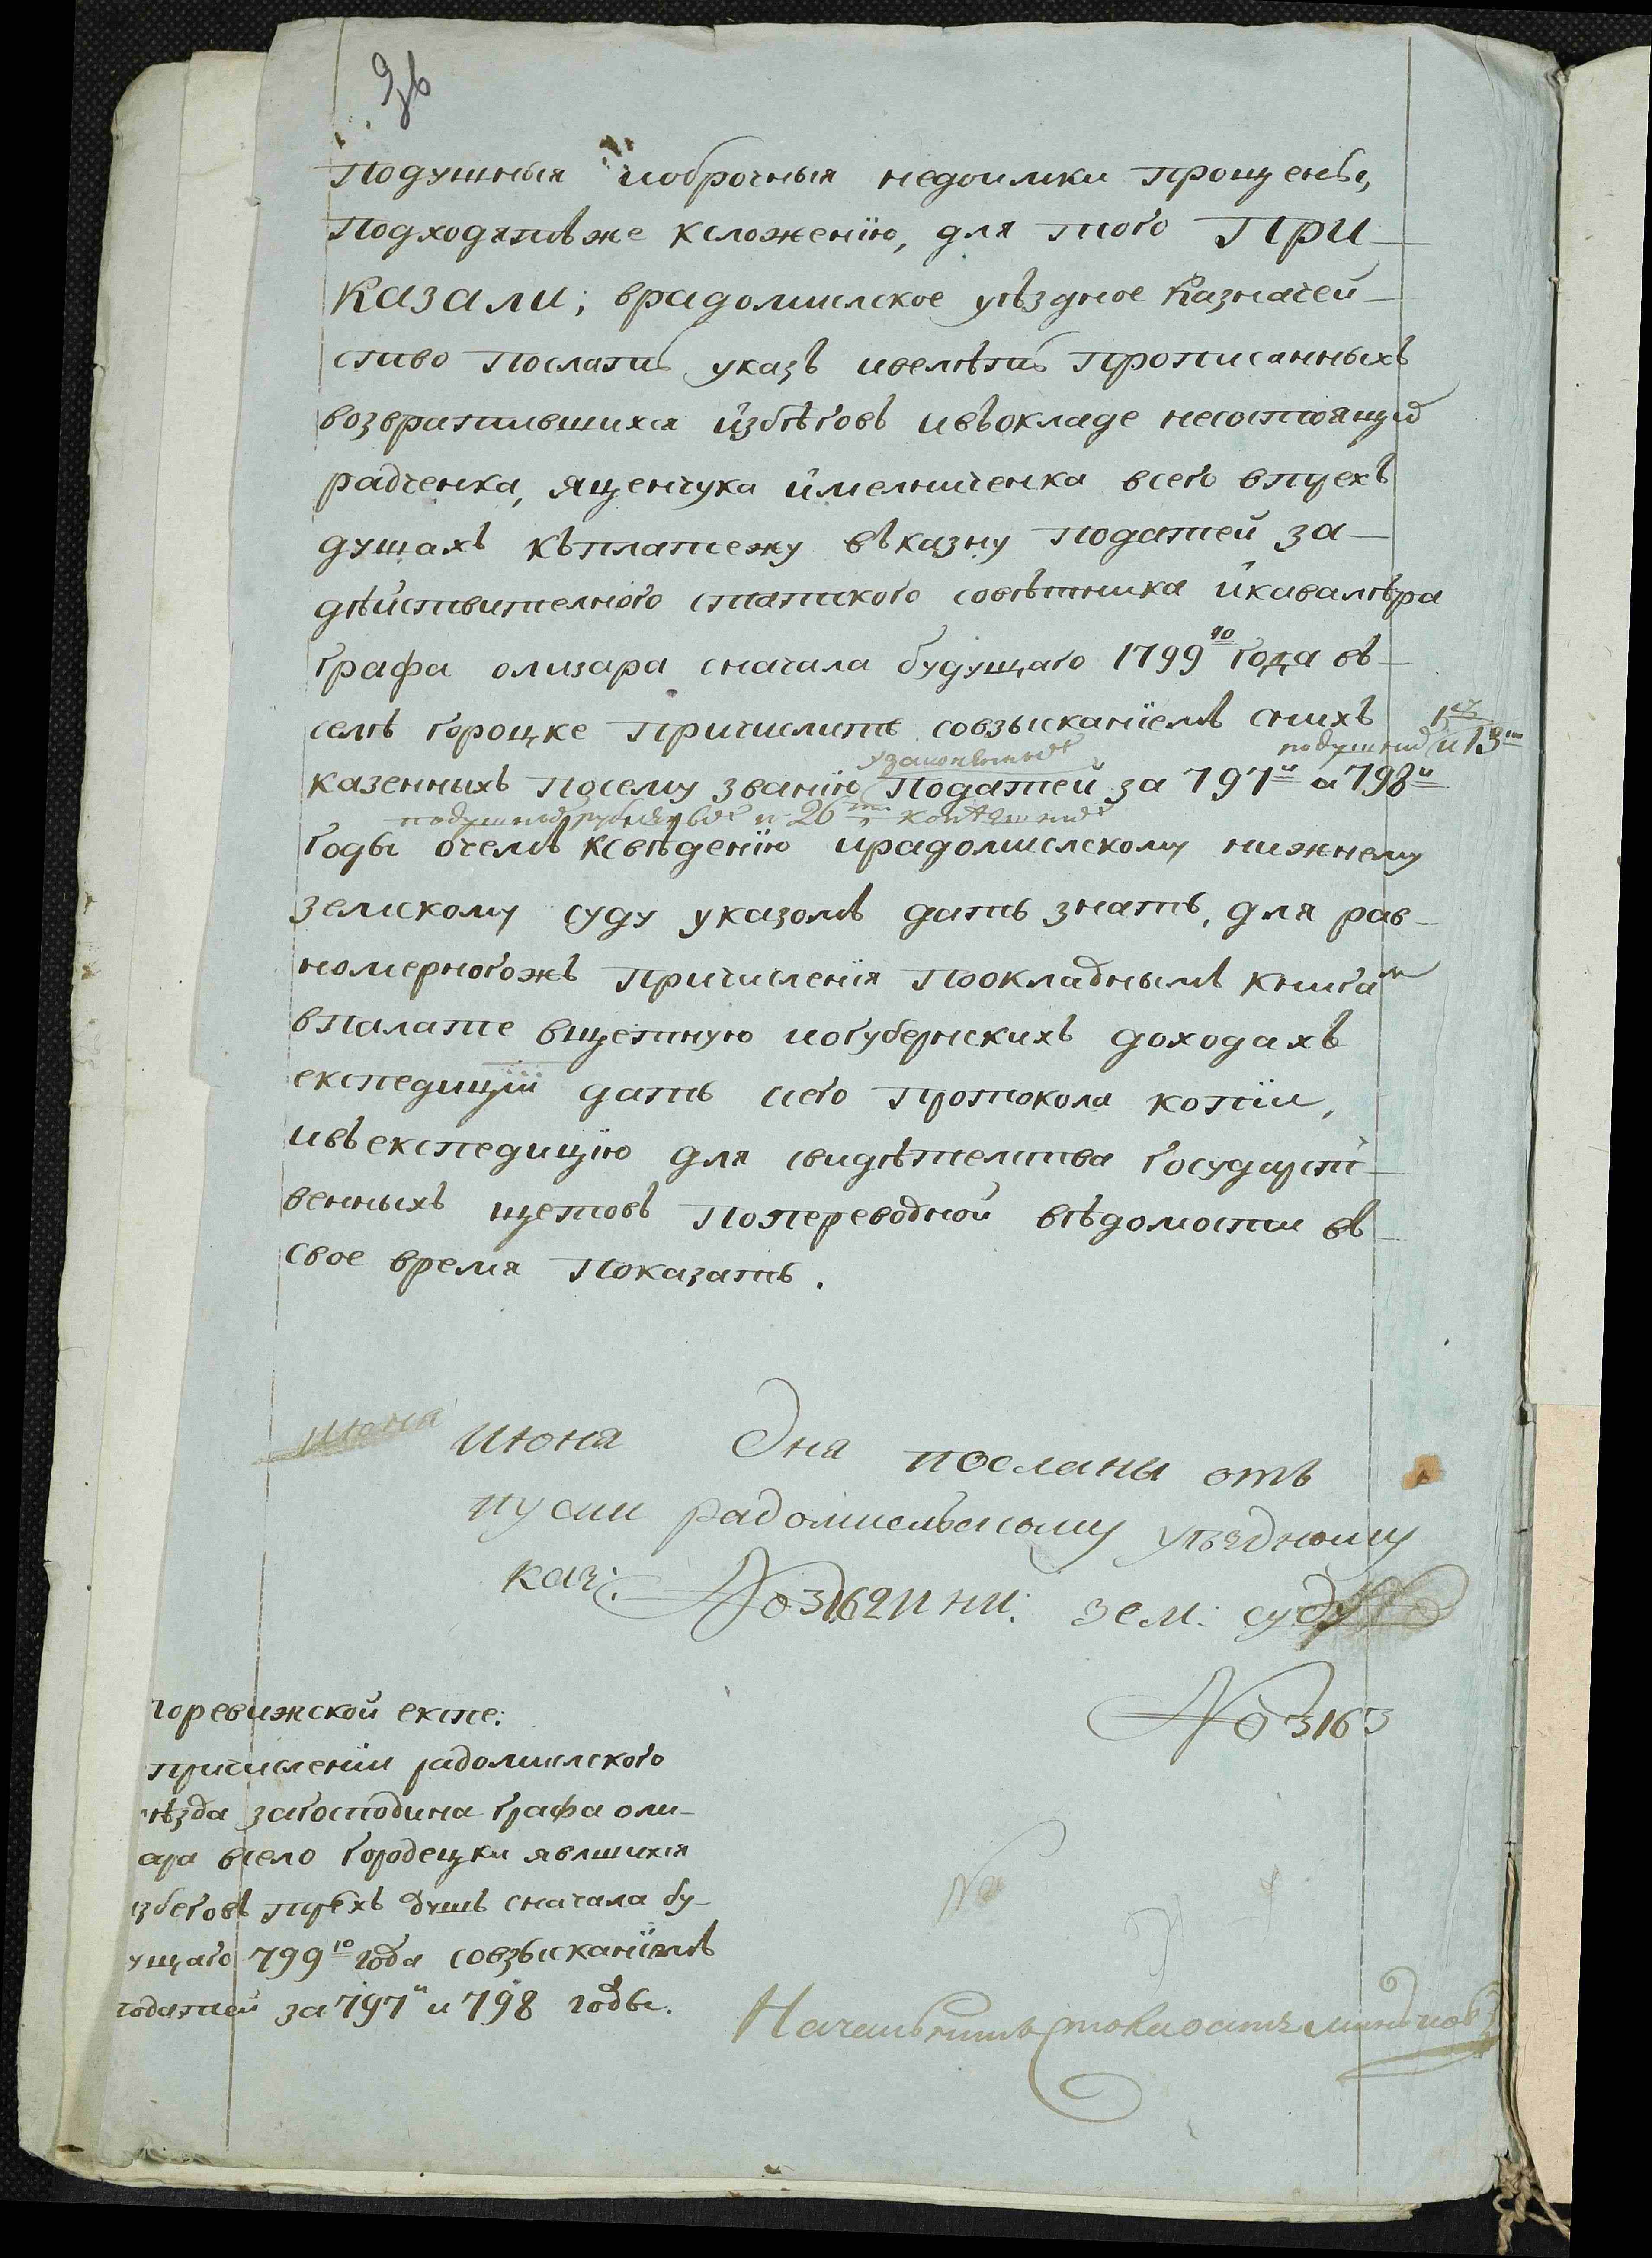 36
подушныя иоброчныя недоимки прощены,
подходятъже ксложенїю, для того При-
казали; врадомислское уѣздное казначей-
ство послать указъ ивелѣть прописанныхъ
возвратившихся избѣговъ ивъокладе несостоящих
радченка, ященчука имелниченка всего втрехъ
душахъ къплатежу въказну податей за-
дѣйствителного статского совѣтника икавалѣра
графа олизара сначала будущаго 1799го года въ-
селѣ городцке причислить совзысканїемъ снихъ
узаконенных подушных и 13
казенныхъ посему званїю податей за 797й и 798й
подушных рублевых и 26ти копѣешных
годы очемъ ксвѣденїю ирадомислскому нижнему
земскому суду указомъ дать знать, для рав-
номерногожъ причисленїя поокладнымъ книгам
впалате вщетную иогубернскихъ доходахъ
експедицїи дать сего протокола копїи,
ивъекспедицїю для свидѣтелства государст-
венныхъ щетовъ попереводной вѣдомости въ-
свое время показать.
июня
июня дня посланы отъ
пуски радомисльскому уѣздному
каз: №3162 и ни: зем: суду
№3163
горевижской експе:
причисленїи радомислского
уѣзда загосподина графа оли-
ара всело городецки явлшихся
избеговъ трехъ душъ сначала бу-
ущаго 799го года совзысканїемъ
податей за 797й и 798 годы.
№